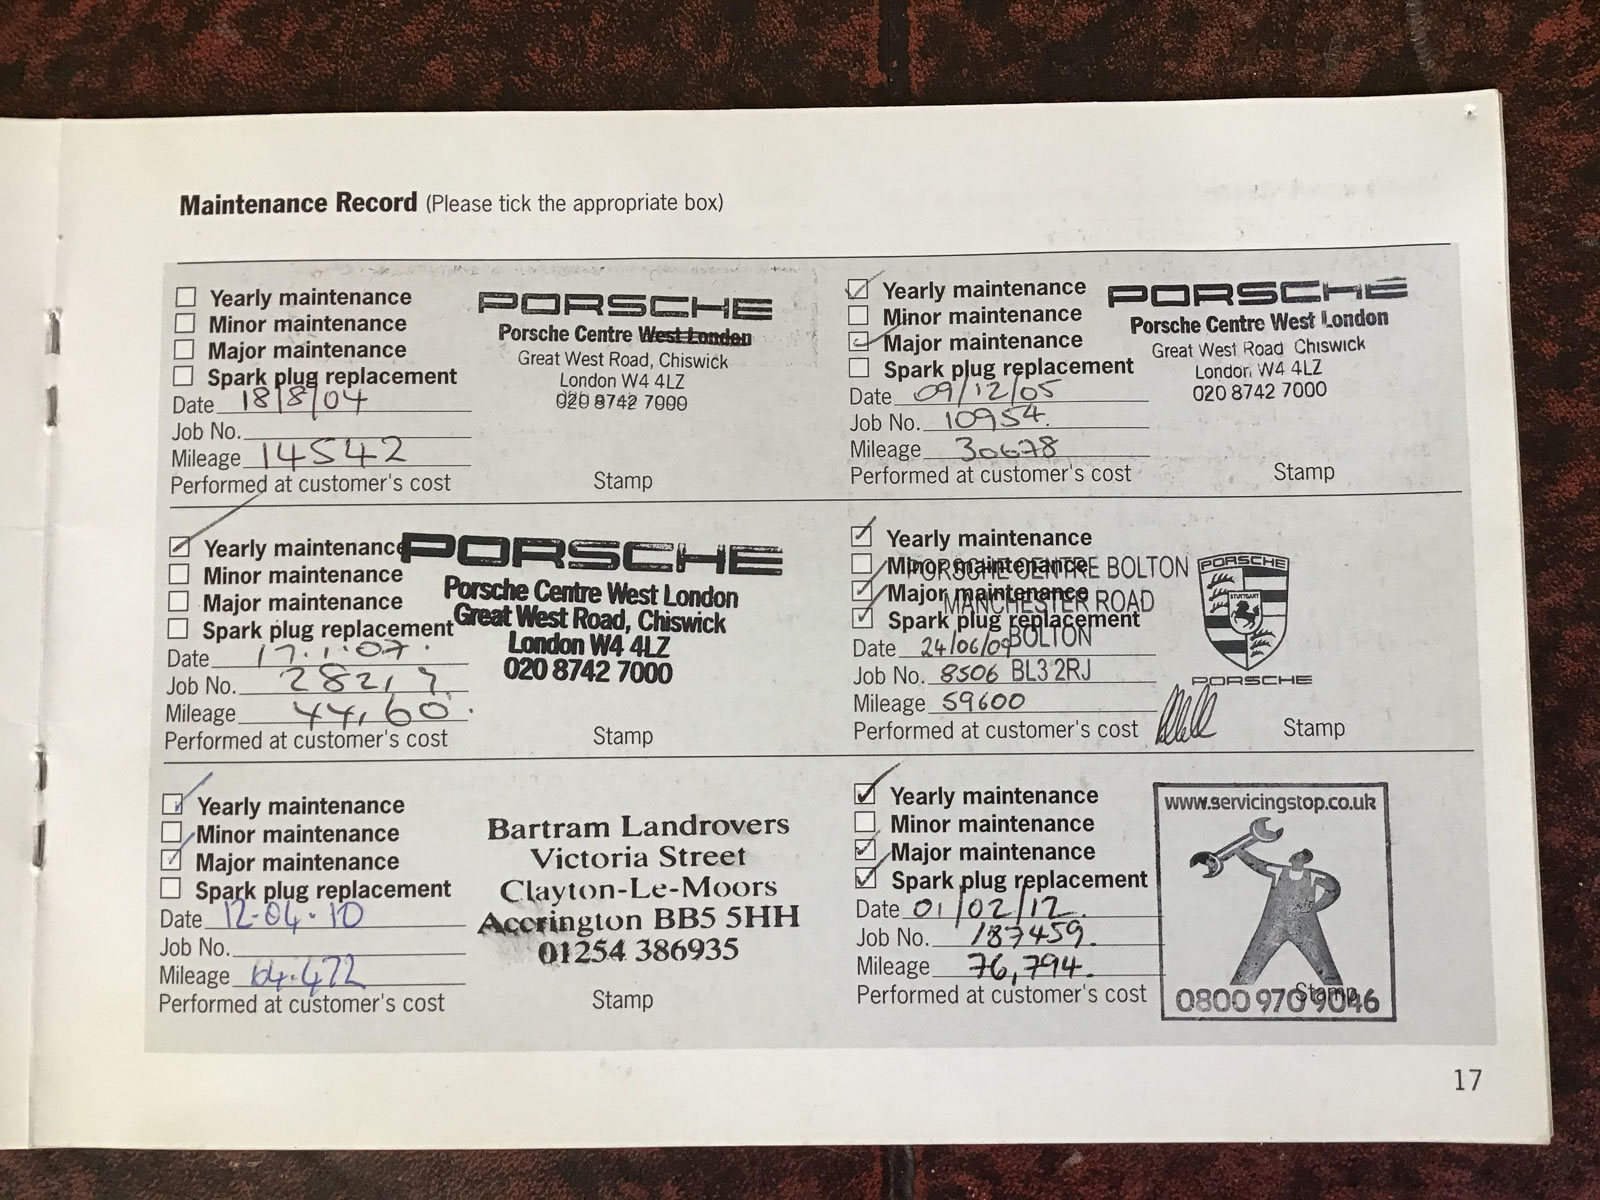 Maintenance Record (Please tick the appropriate box)
Yearly maintenance
Minor maintenance
Major maintenance
Spark plug replacement
Date 18/8/04
Job No.
Mileage 14542
Performed at customer's cost
PORSCHE
Porsche Centre West London
Great West Road, Chiswick
London W4 4LZ
020 8742 7000
Stamp
Yearly maintenance
Minor maintenance
Major maintenance
Spark plug replacement
Date 09/12/05
Job No. 10954.
Mileage 30678
Performed at customer's cost
PORSCHE
Porsche Centre West London
Great West Road Chiswick
London W4 4LZ
020 8742 7000
Stamp
Yearly maintenance
Minor maintenance
Major maintenance
Spark plug replacement
Date 17.1.07.
Job No.
Mileage
Performed at customer's cost
PORSCHE
Porsche Centre West London
Great West Road, Chiswick
London W4 4LZ
020 8742 7000
Stamp
Yearly maintenance
Minor maintenance
Major maintenance
Spark plug replacement
Date 24/06/09
Job No. 8506
Mileage 59600
Performed at customer's cost
PORSCHE CENTRE BOLTON
MANCHESTER ROAD
BOLTON
BL3 2RJ
PORSCHE
STUTTGART
PORSCHE
Stamp
Yearly maintenance
Minor maintenance
Major maintenance
Spark plug replacement
Date 12-04-10
Job No.
Mileage 64.472
Performed at customer's cost
Bartram Landrovers
Victoria Street
Clayton-Le-Moors
Accrington BB5 5HH
01254 386935
Stamp
Yearly maintenance
Minor maintenance
Major maintenance
Spark plug replacement
Date 01/02/12.
Job No. 187459.
Mileage 76,794.
Performed at customer's cost
www.servicingstop.co.uk
0800 970 9046
Stamp
17